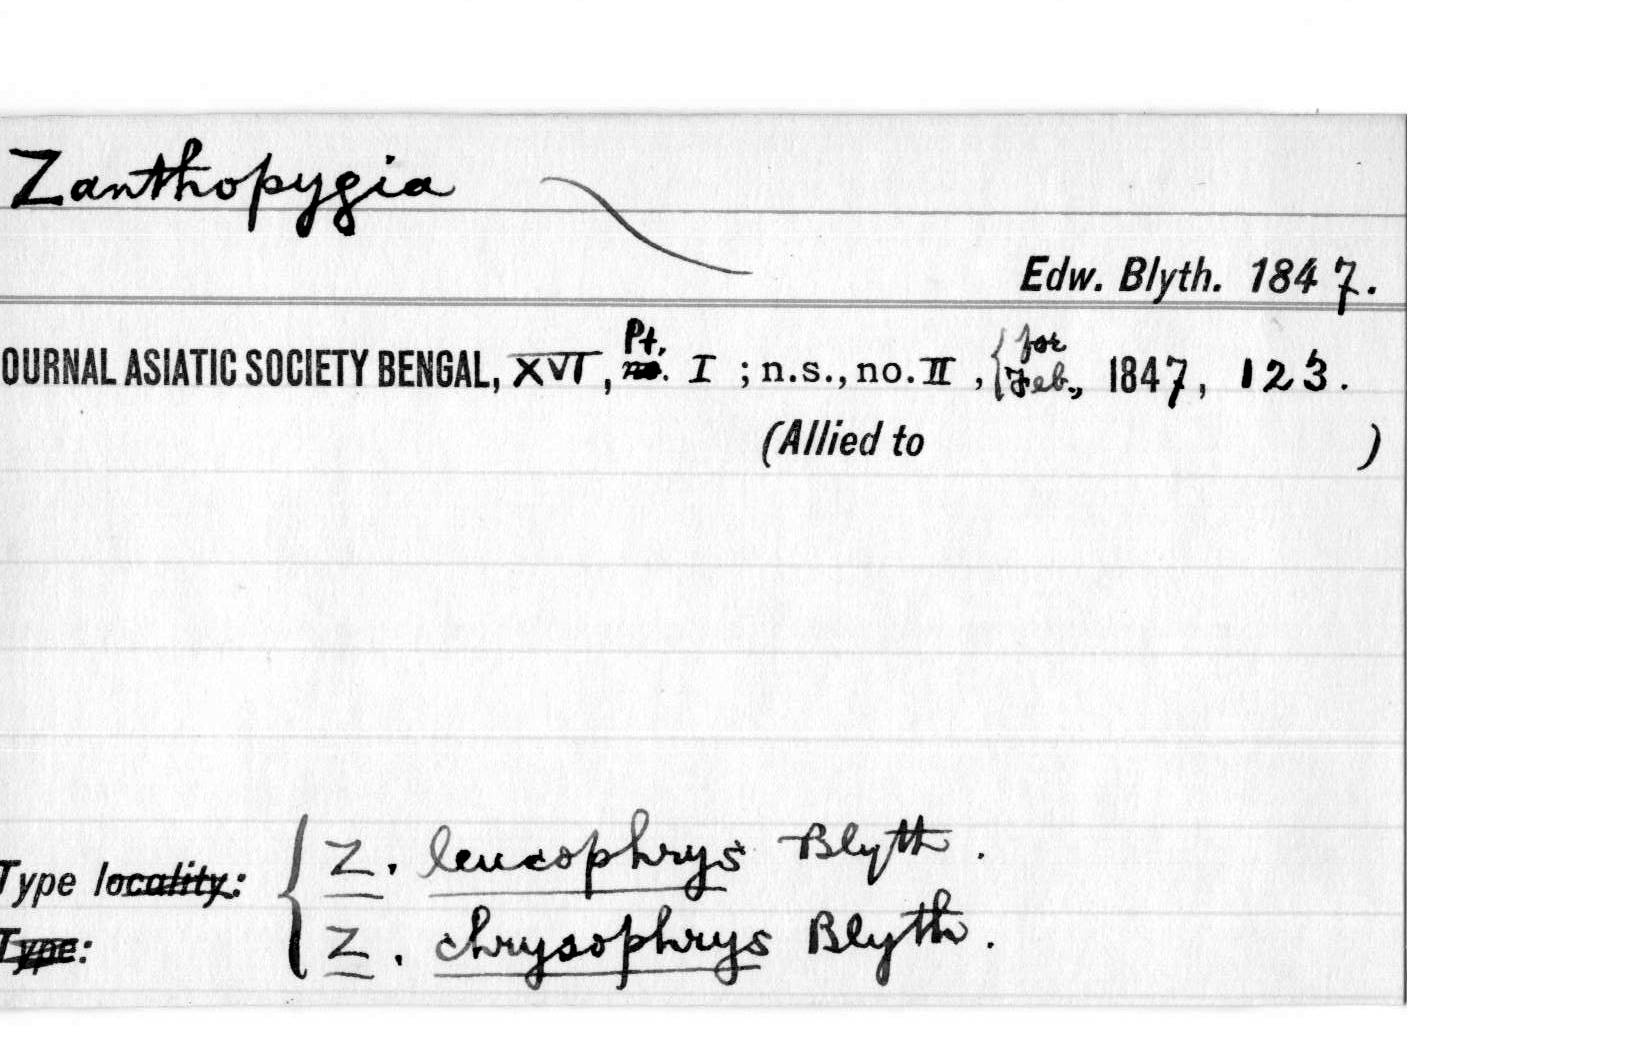 Zanthopygia
Edw. Blyth. 1847.
OURNAL ASIATIC SOCIETY BENGAL, XVI, Pt. no. I ; n.s., no. II , { for Feb., 1847, 123.
(Allied to )
Type locality: { Z. leucophrys Blyth.
Type: Z. chrysophrys Blyth.